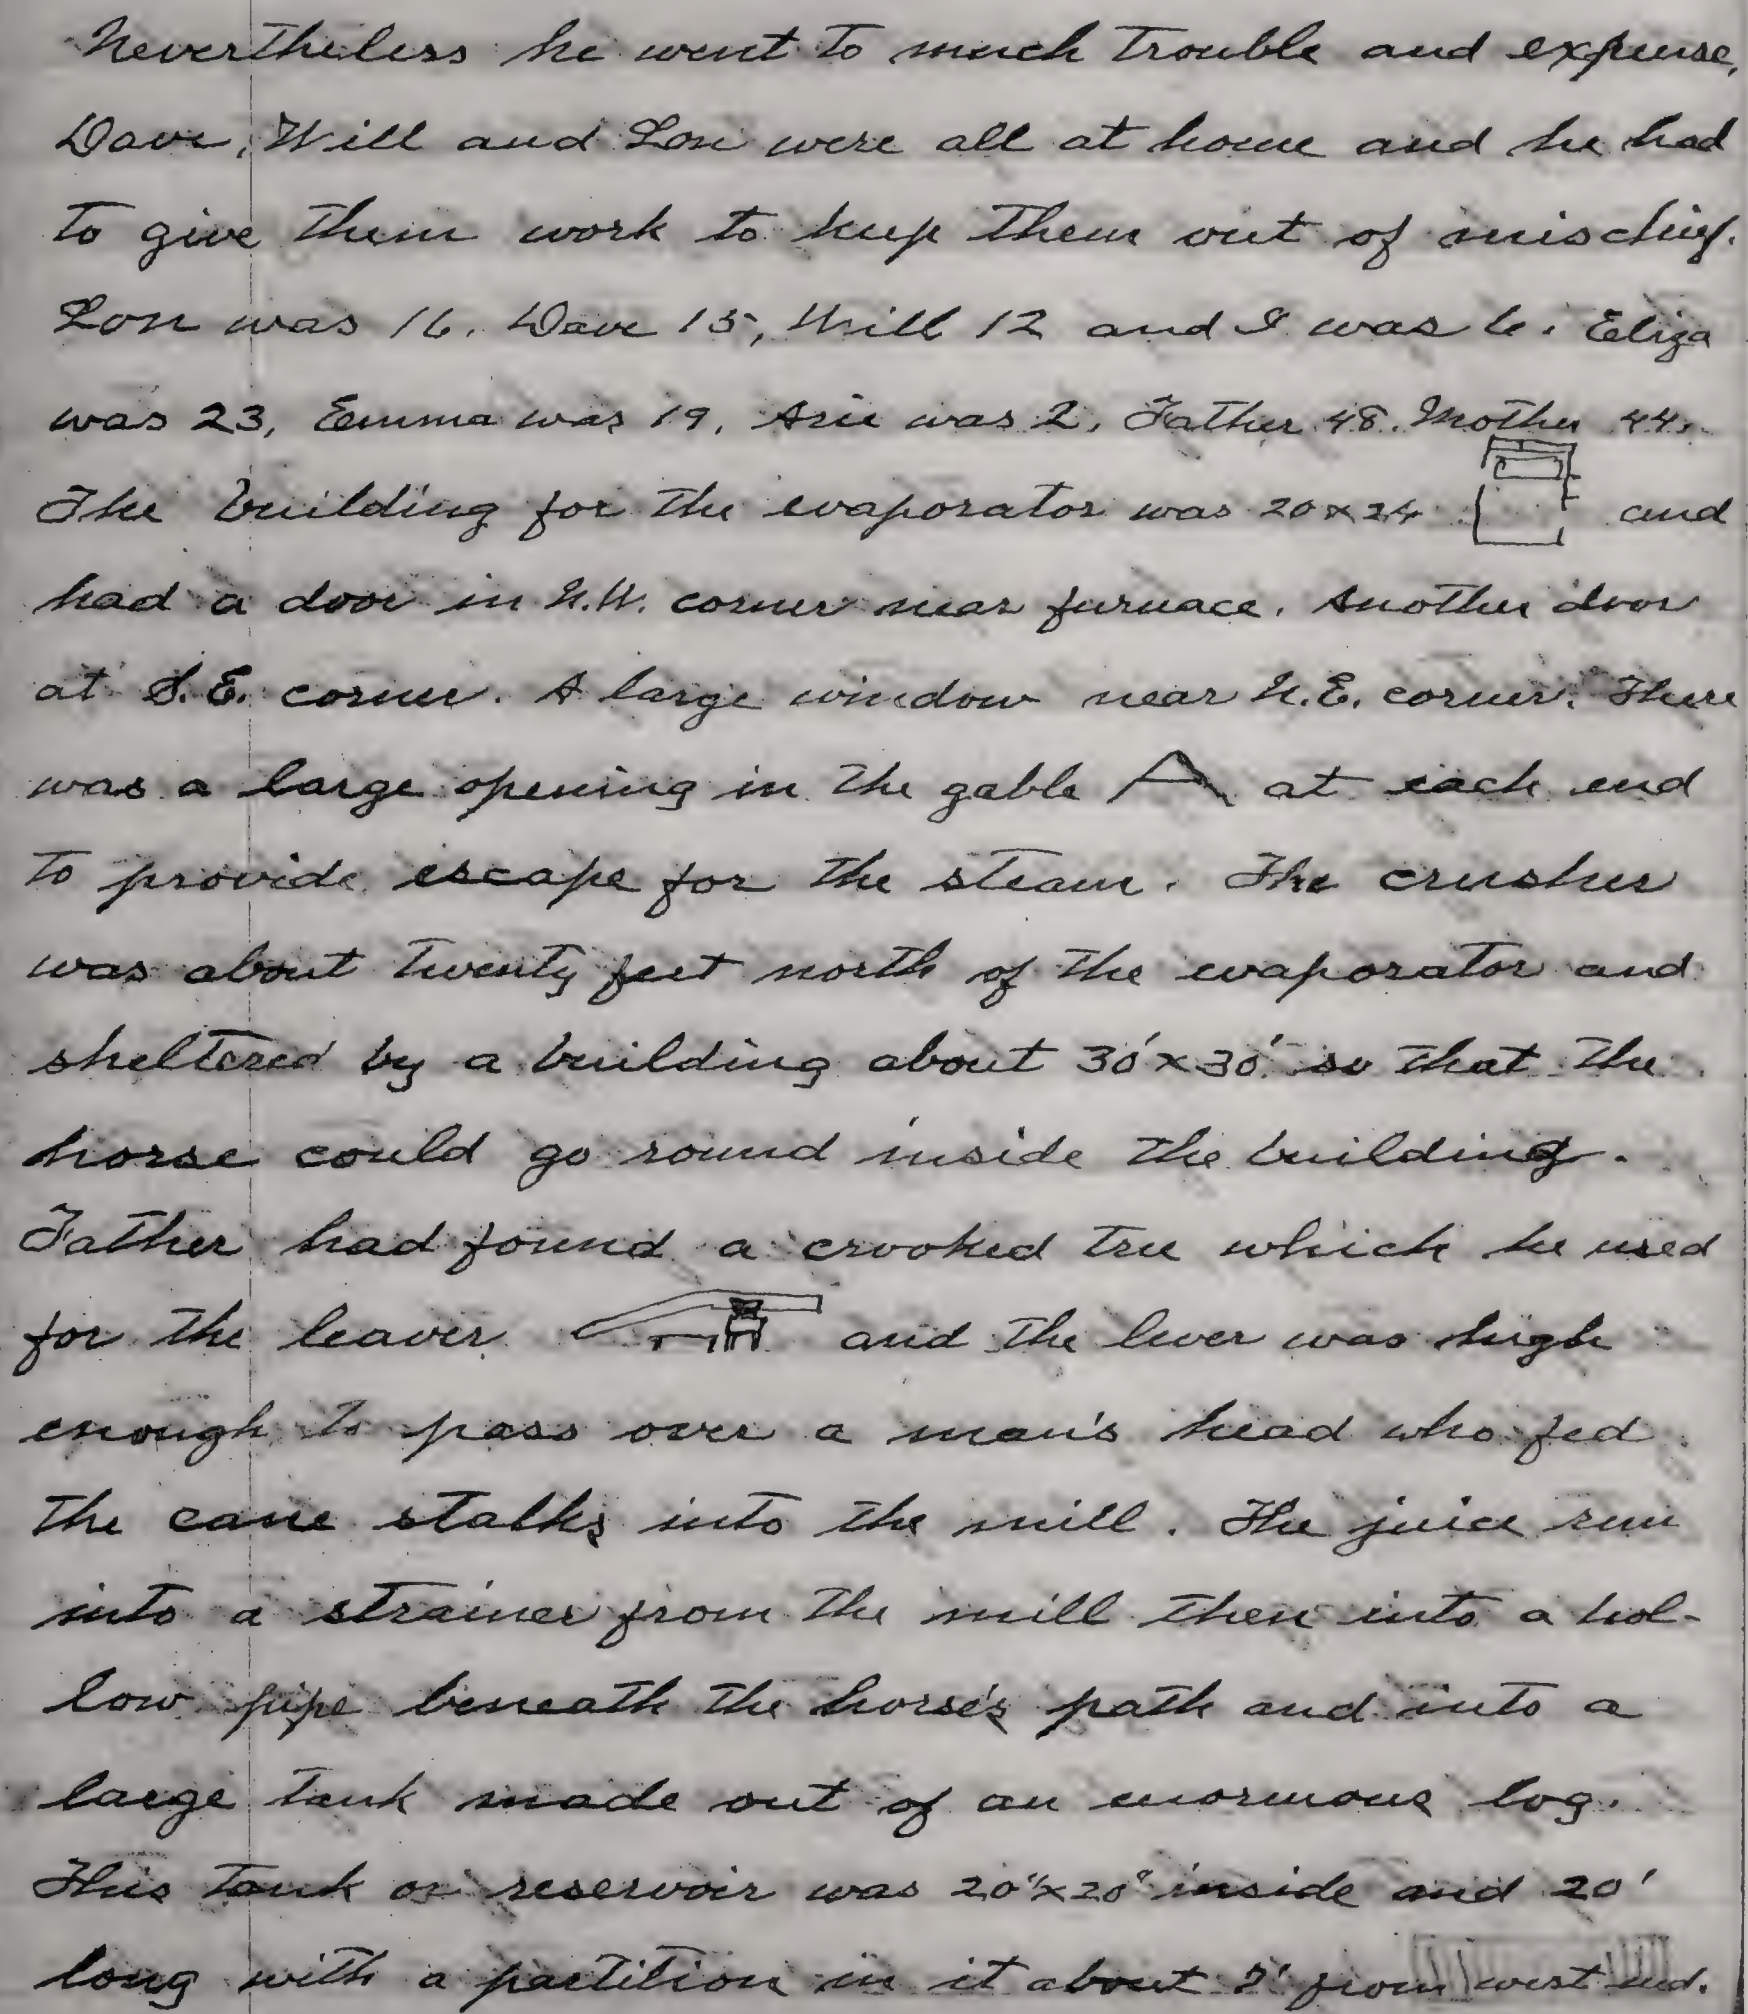 Nevertheless he went to much trouble and expense.
Dave, Will and Lon were all at home and he had
to give them work to keep them out of mischief.
Lon was 16, Dave 15, Will 12 and I was 6. Eliza
was 23, Emma was 19, Asie was 2, Father 48. Mother 44.
The building for the evaporator was 20x24 and
had a door in N.W. corner near furnace. Another door
at S.E. corner. A large window near N.E. corner. There
was a large opening in the gable at each end
to provide escape for the steam. The crusher
was about twenty feet north of the evaporator and
sheltered by a building about 30'x30' so that the
horse could go round inside the building.
Father had found a crooked tree which he used
for the leaver and the lever was high
enough to pass over a man's head who fed
the cane stalks into the mill. The juice run
into a strainer from the mill then into a hol-
low pipe beneath the horse's path and into a
large tank made out of an enormous log.
This tank or reservoir was 20"x20" inside and 20'
long with a partition in it about 2' from west end.